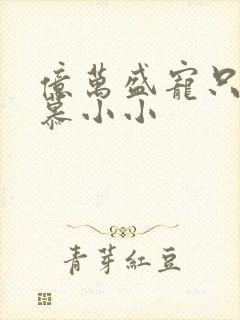 億萬盛寵只
慕小小
青芽紅豆